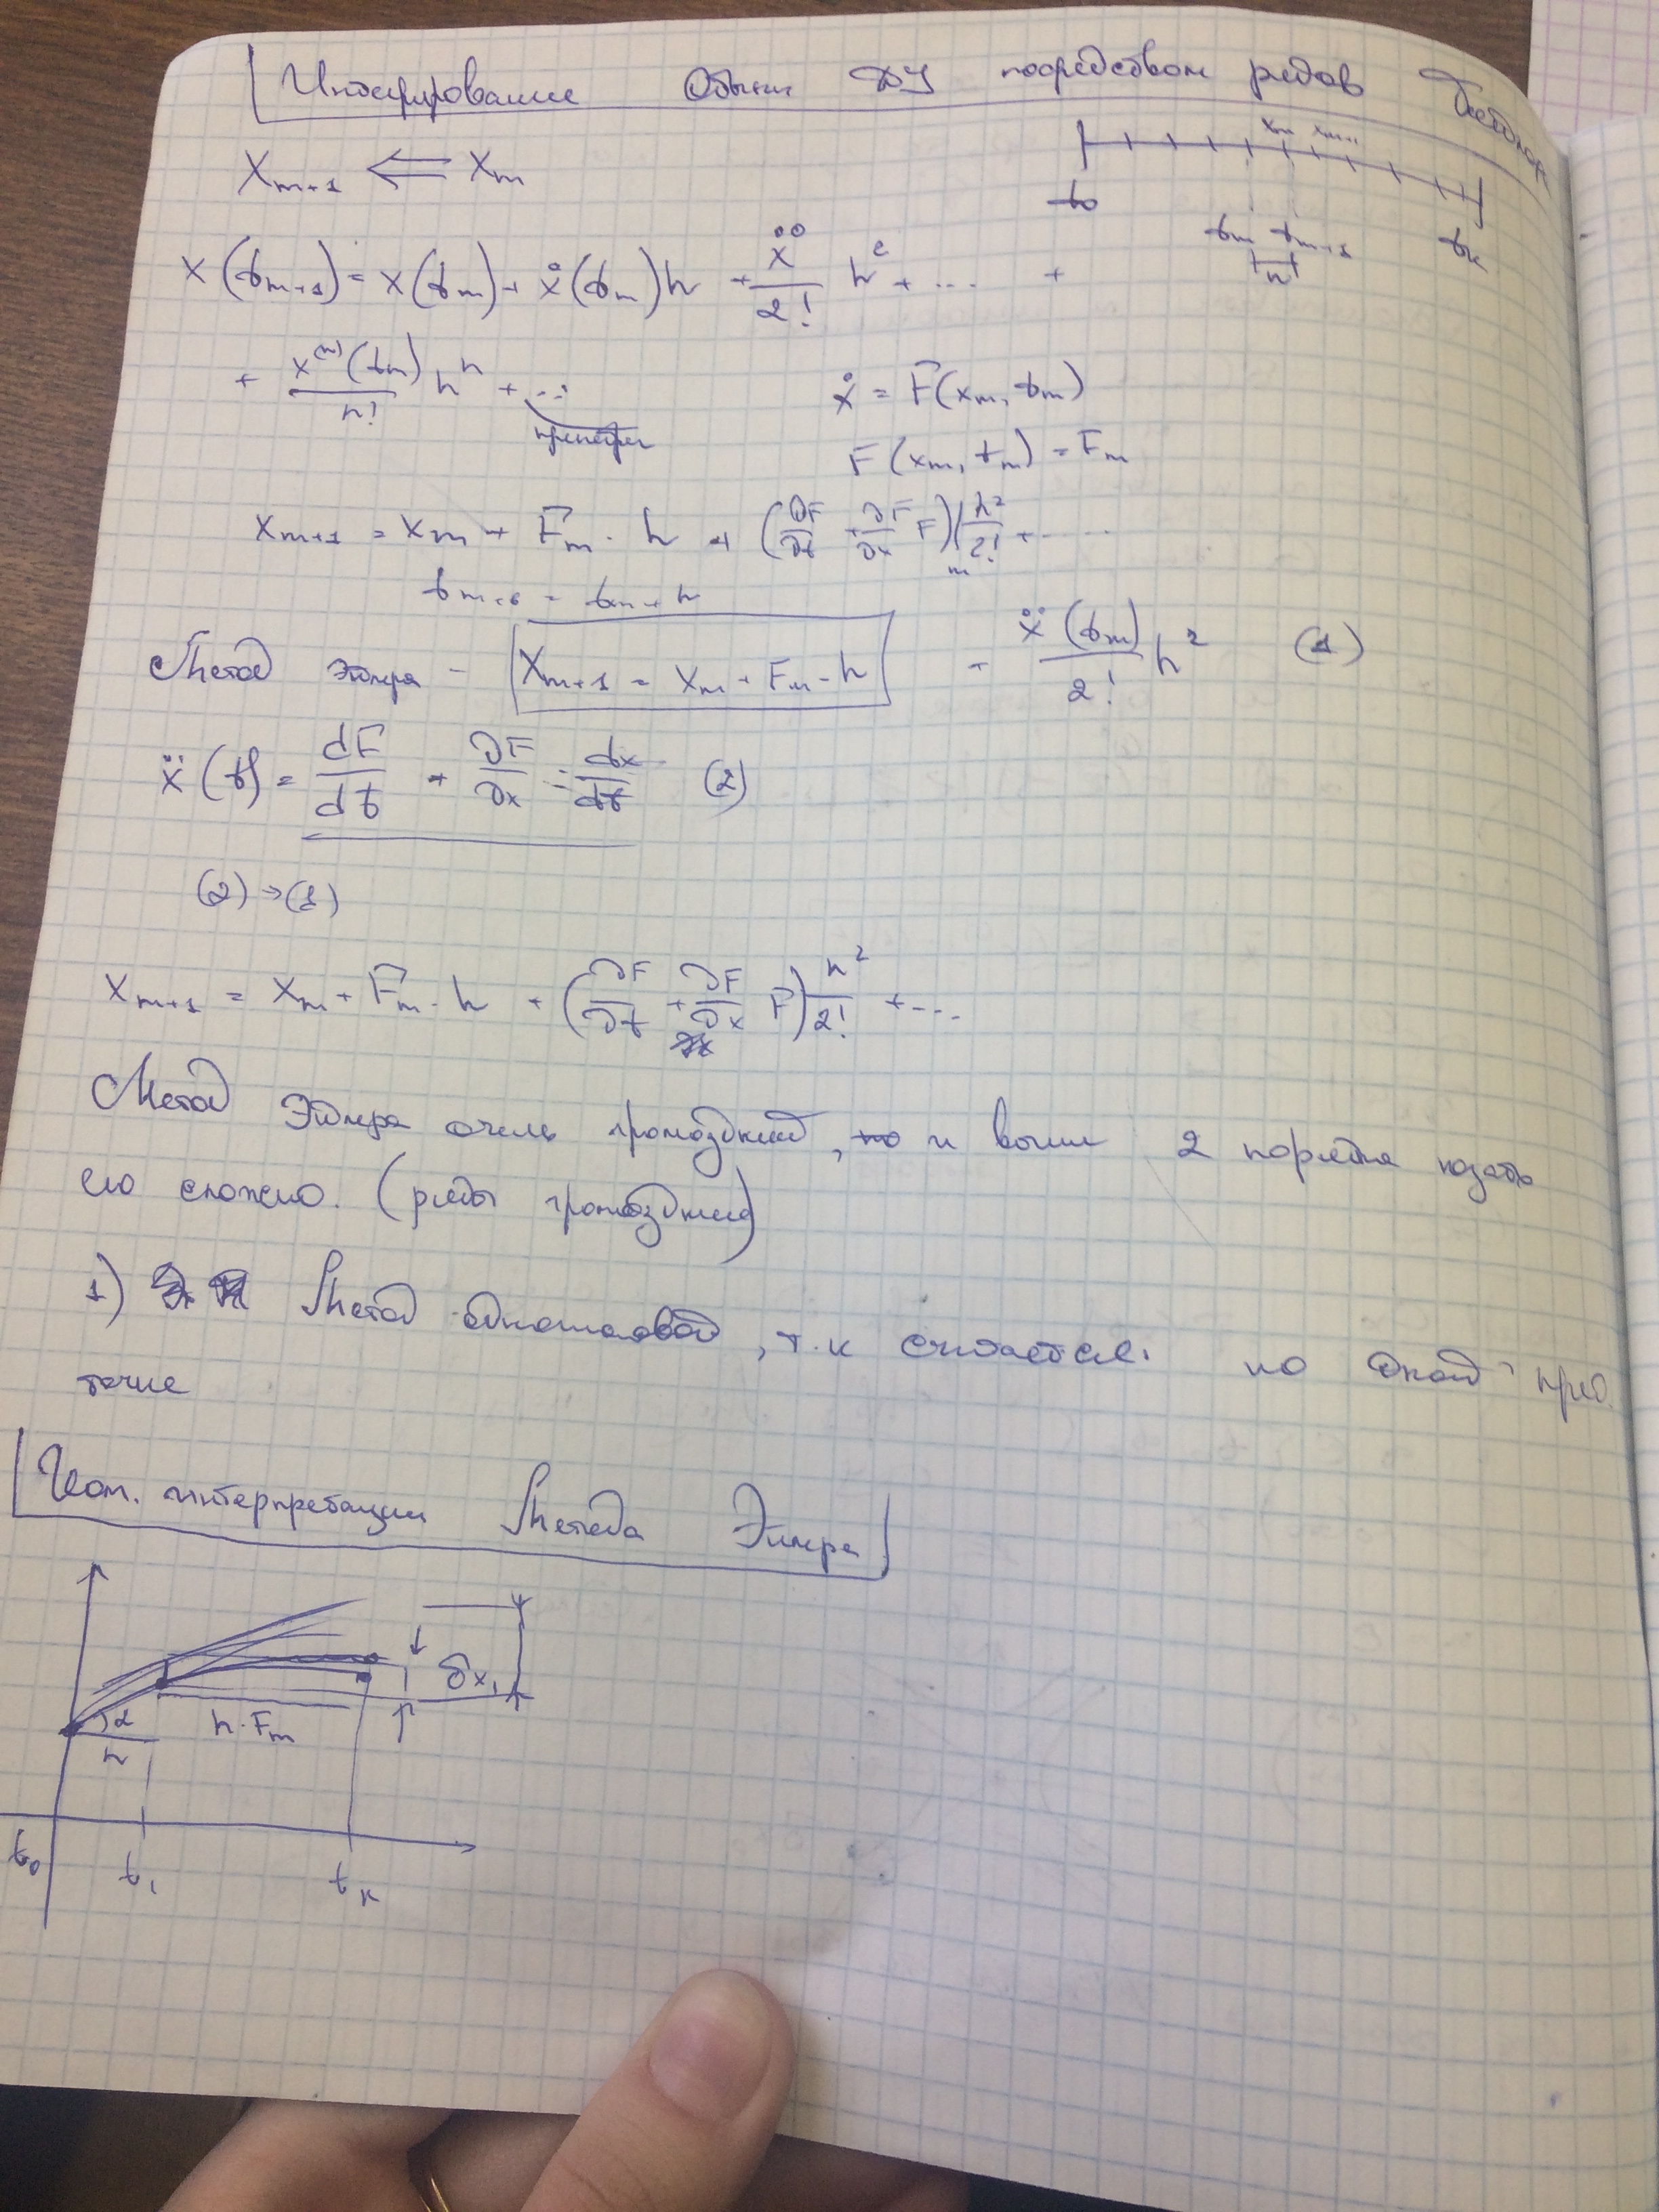 Интегрирование Обычн ДУ посредством рядов Тейлора
X_{m+1} ⟸ X_m
x_m x_{m+1}
t_0 t_m t_{m+1} t_k
h
x(t_{m+1}) = x(t_m) + ẋ(t_m)h + ẍ/2! h² + ... +
+ x^{(n)}(t_m)/n! h^n + ...
ẋ = F(x_m, t_m)
F(x_m, t_m) = F_m
x_{m+1} = x_m + F_m · h + (∂F/∂t + ∂F/∂x F)|_m h²/2! + ....
t_{m+1} = t_m + h
Метод Эйлера - X_{m+1} = X_m + F_m · h - ẍ(t_m)/2! h² (1)
ẍ(t) = dF/dt + ∂F/∂x · dx/dt (2)
(2) → (1)
X_{m+1} = X_m + F_m · h + (∂F/∂t + ∂F/∂x F) h²/2! + ...
Метод Эйлера очень громоздкий, и выше 2 порядка
его сложно. (ряды громоздкие)
1) Метод одношаговой, т.к считается по одной пред.
точке
Геом. интерпретации Метода Эйлера
δx_1
α
h
h · F_m
t_0 t_1 t_k